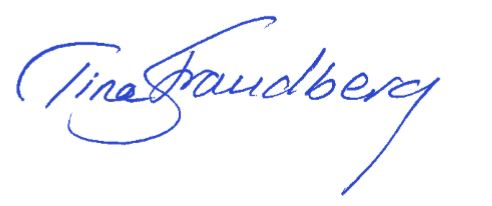 Tina Strandberg